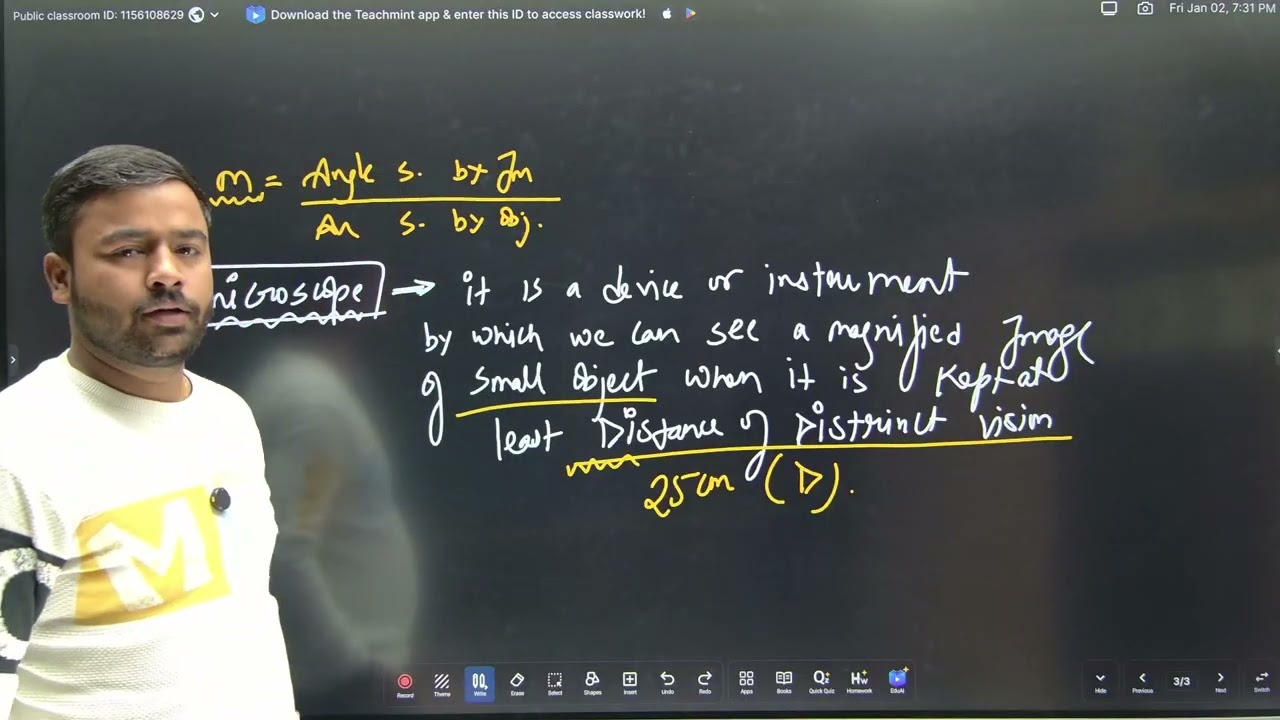 Public classroom ID: 1156108629
Download the Teachmint app & enter this ID to access classwork!
Fri Jan 02, 7:31 PM
m = Angle s. by Im
An s. by Obj.
microscope → it is a device or instrument
by which we can see a magnified Image
of small object when it is kept at
least Distance of Distrinct vision
25cm (D).
M
Record Theme Write Erase Select Shapes Insert Undo Redo Apps Books Quick Quiz Homework EduAI Hide Previous 3/3 Next Switch